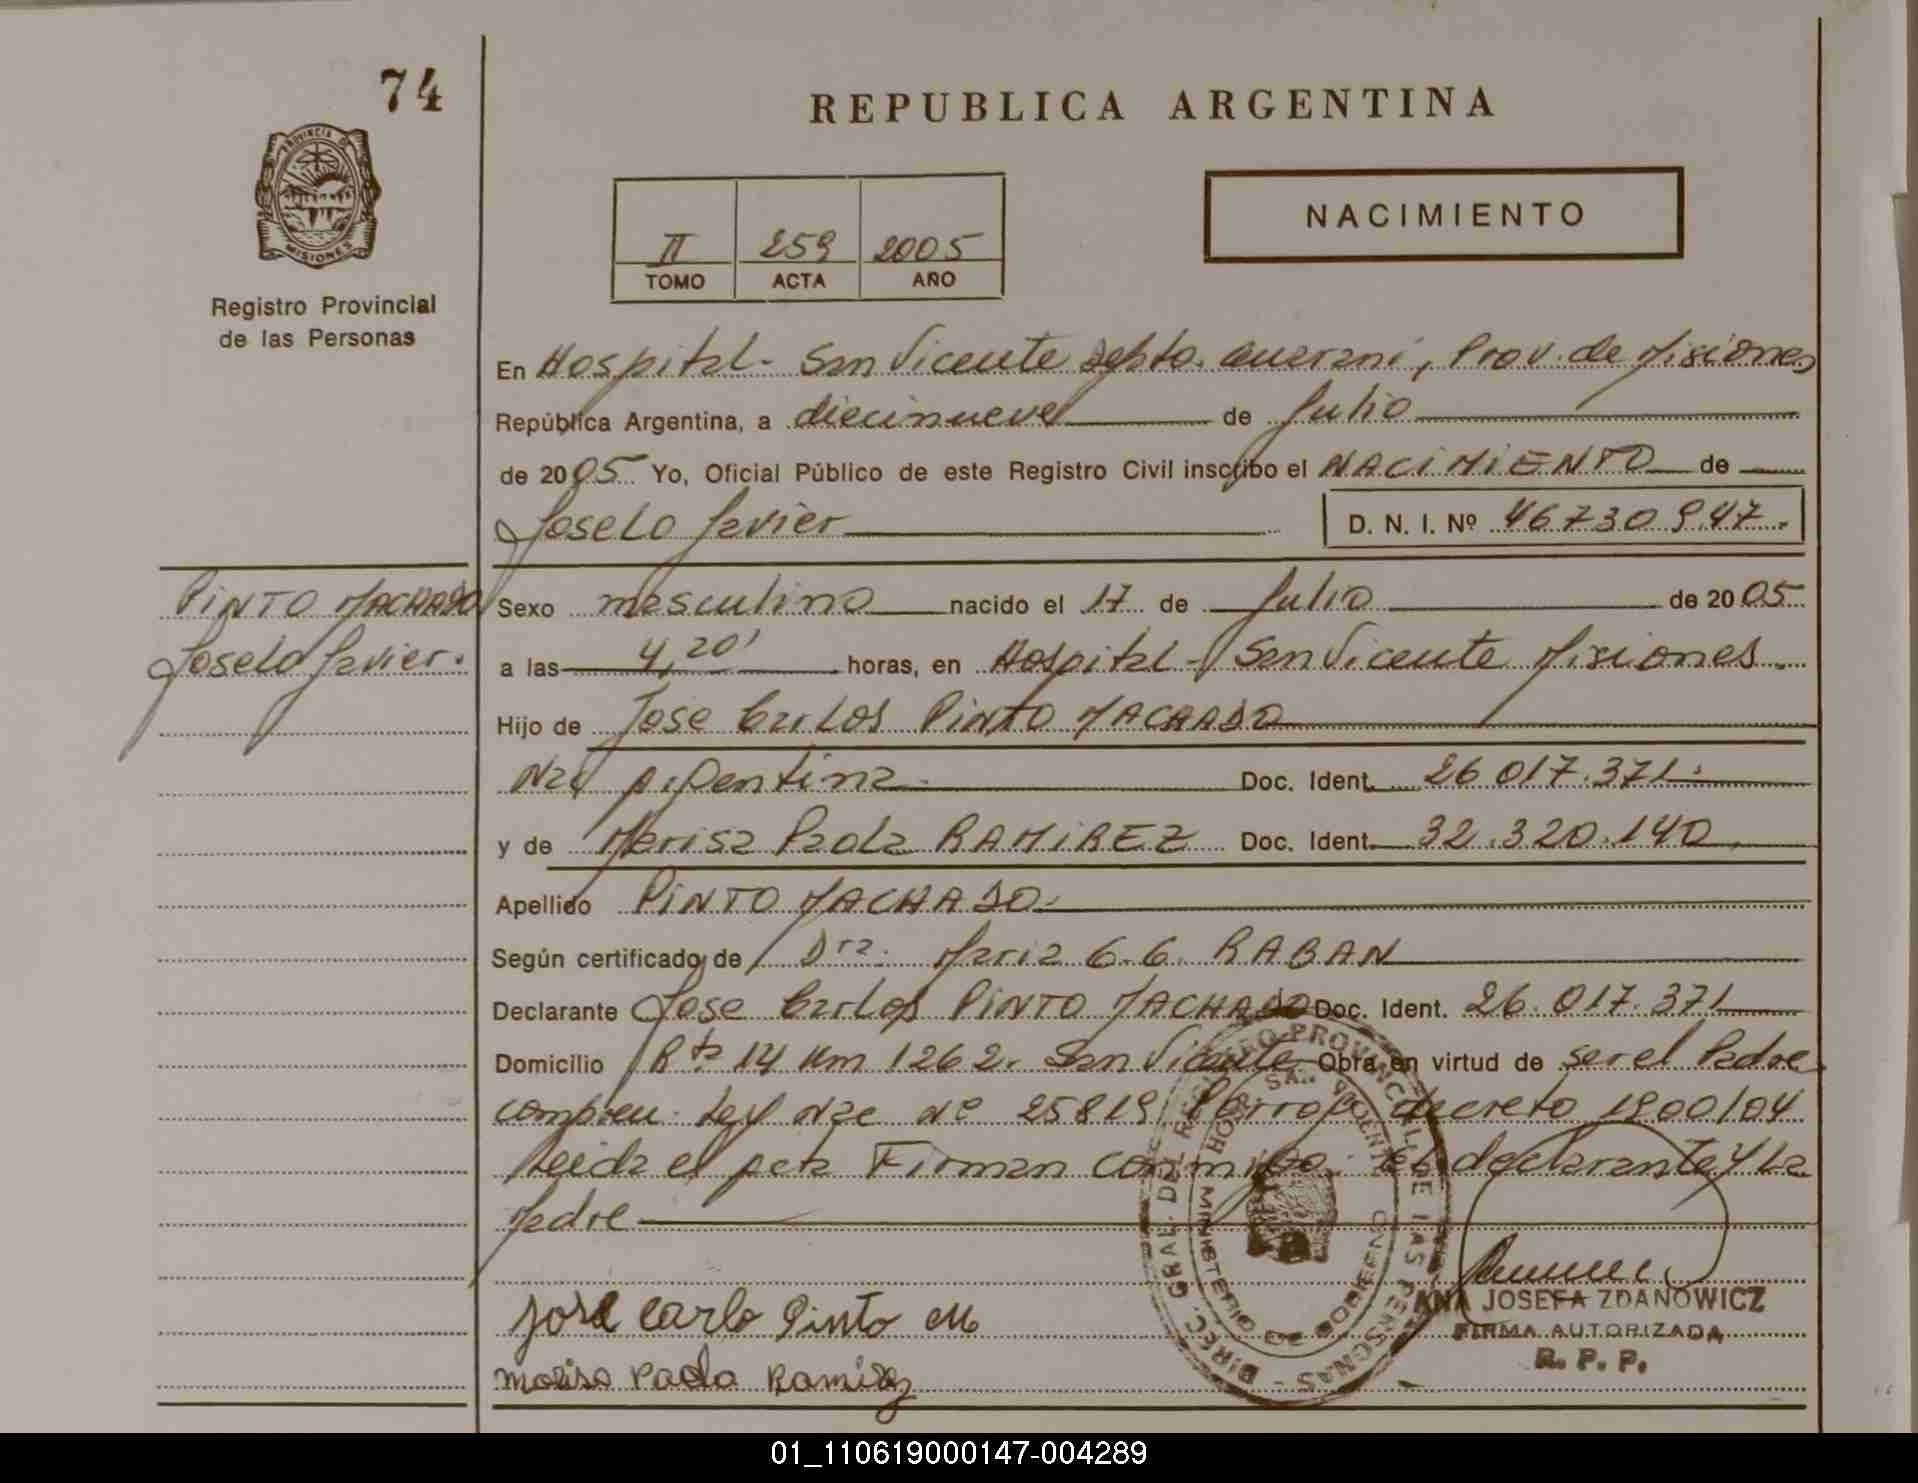 74
PROVINCIA DE
MISIONES
Registro Provincial
de las Personas
REPUBLICA ARGENTINA
NACIMIENTO
II 259 2005
TOMO ACTA AÑO
En Hospital - San Vicente Depto. Guarani, Prov. de Misiones
República Argentina, a diecinueve de Julio
de 2005 Yo, Oficial Público de este Registro Civil inscribo el NACIMIENTO de
Joselo Javier D. N. I. Nº 46730947.
PINTO MACHADO
Joselo Javier.
Sexo masculino nacido el 17 de Julio de 2005
a las 4,20' horas, en Hospital - San Vicente Misiones.
Hijo de Jose Carlos PINTO MACHADO
Nac Argentina. Doc. Ident. 26.017.371.
y de Marisa Paola RAMIREZ Doc. Ident. 32.320.140
Apellido PINTO MACHADO.
Según certificado de Dra. Maria G.G. RABAN
Declarante Jose Carlos PINTO MACHADO Doc. Ident. 26.017.371
Domicilio Rta 14 Km 1262. San Vicente Obra en virtud de ser el Padre
Ley Nac Nº 25819 decreto 1900/04
Leida el acta Firman conmigo. El declarante y La
Madre
José Carlo Pinto M
marisa Paola Ramirez
DIREC. GRAL. DEL REGISTRO PROVINCIAL DE LAS PERSONAS
MINISTERIO DE GOBIERNO
ANA JOSEFA ZDANOWICZ
FIRMA AUTORIZADA
R. P. P.
01_110619000147-004289